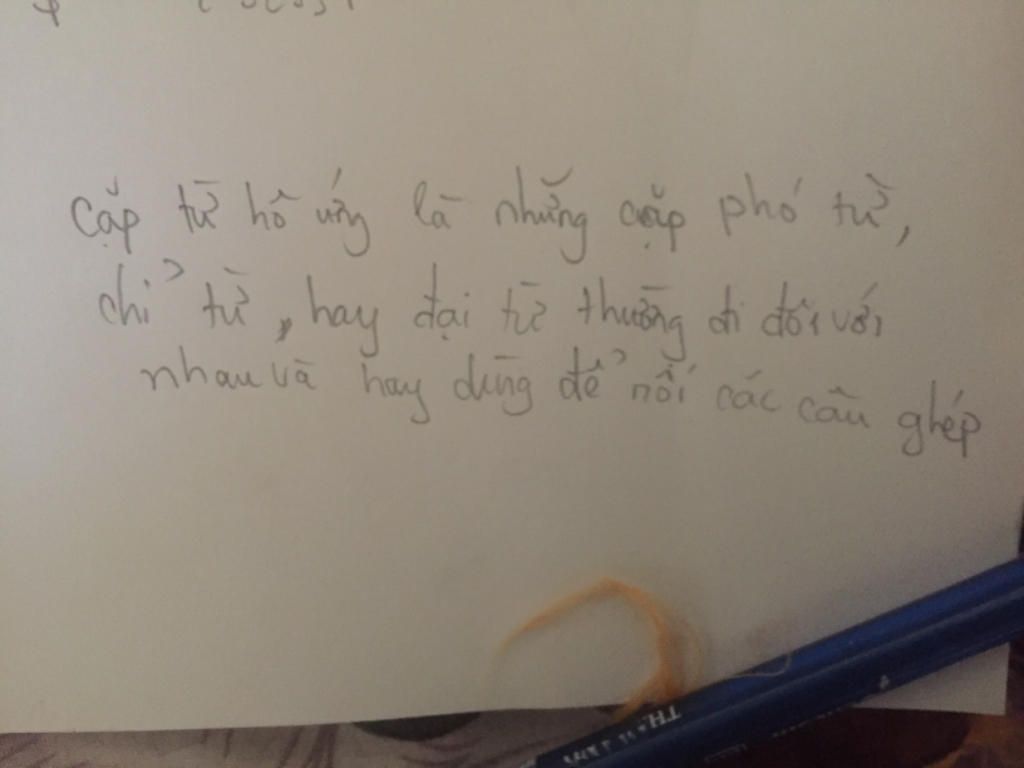 cặp từ hô ứng là những cặp phó từ,
chỉ từ, hay đại từ thường đi đôi với
nhau và hay dùng để nối các câu ghép
TH.